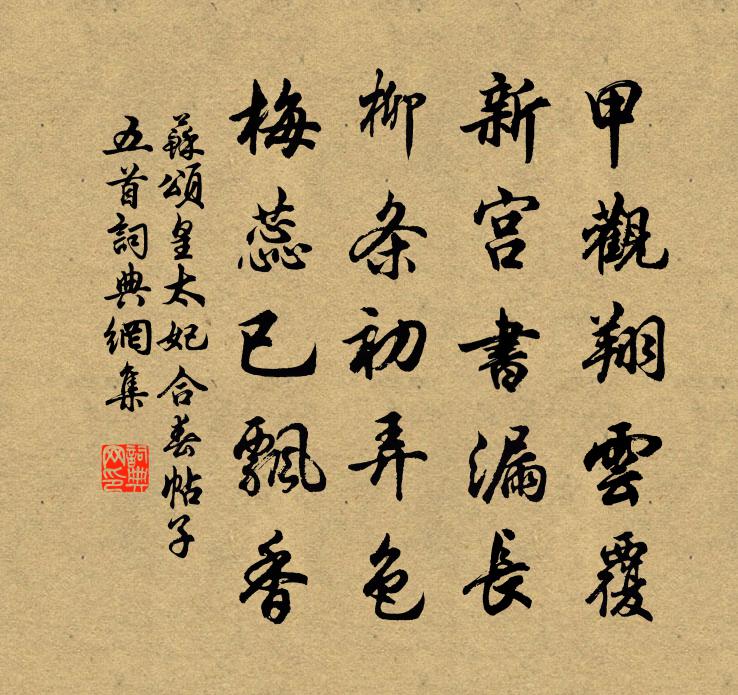 甲觀翔雲覆
新宮書漏長
柳条初弄色
梅蕊已飄香
蘇頌皇太妃合春帖子
五首詞典網集
詞典
网印